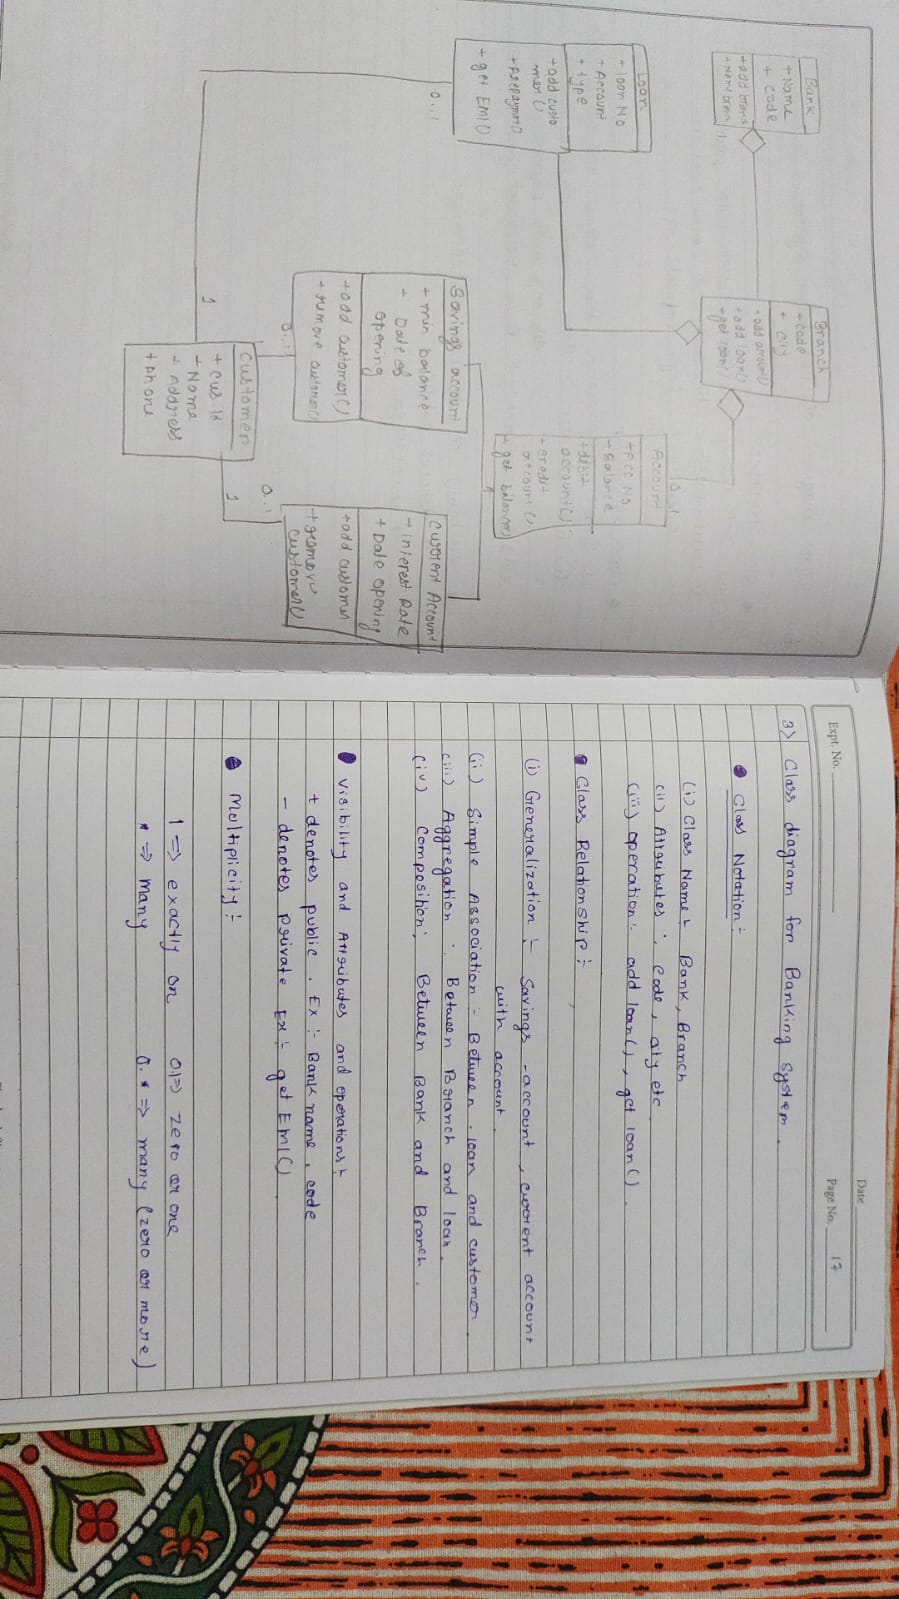 Bank
+Name
+ code
+add branch
+Name branch
1
Branch
+code
+ city
+add account()
+add loan()
+get loan()
1
Loan
+loan No
+Account
+type
+add custo
mer()
+prepayment()
+get EMI()
0..1
Account
+Acc No
-Balance
+debit
account()
+credit
account()
+get balance()
Savings account
+ min balance
+ Date of
opening
+add customer()
+remove customer()
0..1
Current Account
+Interest Rate
+Date opening
+add customer
+remove
customer()
0..1
Customer
+cus id
+Name
+Address
+phone
1
1
Expt. No.
Date
Page No. 17
3) Class diagram for Banking system.
Class Notation:-
(i) Class Name:- Bank, Branch
(ii) Attributes: Code, city etc
(iii) operation:- add loan(), get loan().
Class Relationship:-
(i) Generalization:- Savings-account, current account
with account.
(ii) Simple Association:- Between loan and customer.
(iii) Aggregation: Between Branch and loan.
(iv) Composition: Between Bank and Branch.
Visibility and Attributes and operations:-
+ denotes public. Ex:- Bank name, code
- denotes private Ex:- get EMI()
Multiplicity:-
1 => exactly on 01=> zero or one
* => Many 0.* => many (zero or more)